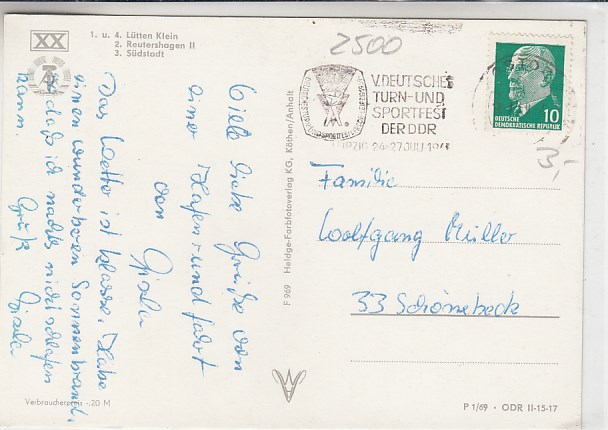 XX
1. u. 4. Lütten Klein
2. Reutershagen II
3. Südstadt
2500
V. DEUTSCHES
TURN- UND
SPORTFEST
DER DDR
LEIPZIG 24.-27. JULI
DEUTSCHE
DEMOKRATISCHE REPUBLIK
10
3,-
Viele liebe Grüße von
einer Hafenrundfahrt
von Gisela
Das Wetter ist klasse, Habe
einen wunderbaren Sonnenbrand,
so daß ich nachts nicht schlafen
kann. Gruß Gisela
Familie
Wolfgang Müller
33 Schönebeck
F 969 Heldge-Farbfotoverlag KG, Köthen/Anhalt
Verbraucherpreis -.20 M
P 1/69 · ODR II-15-17